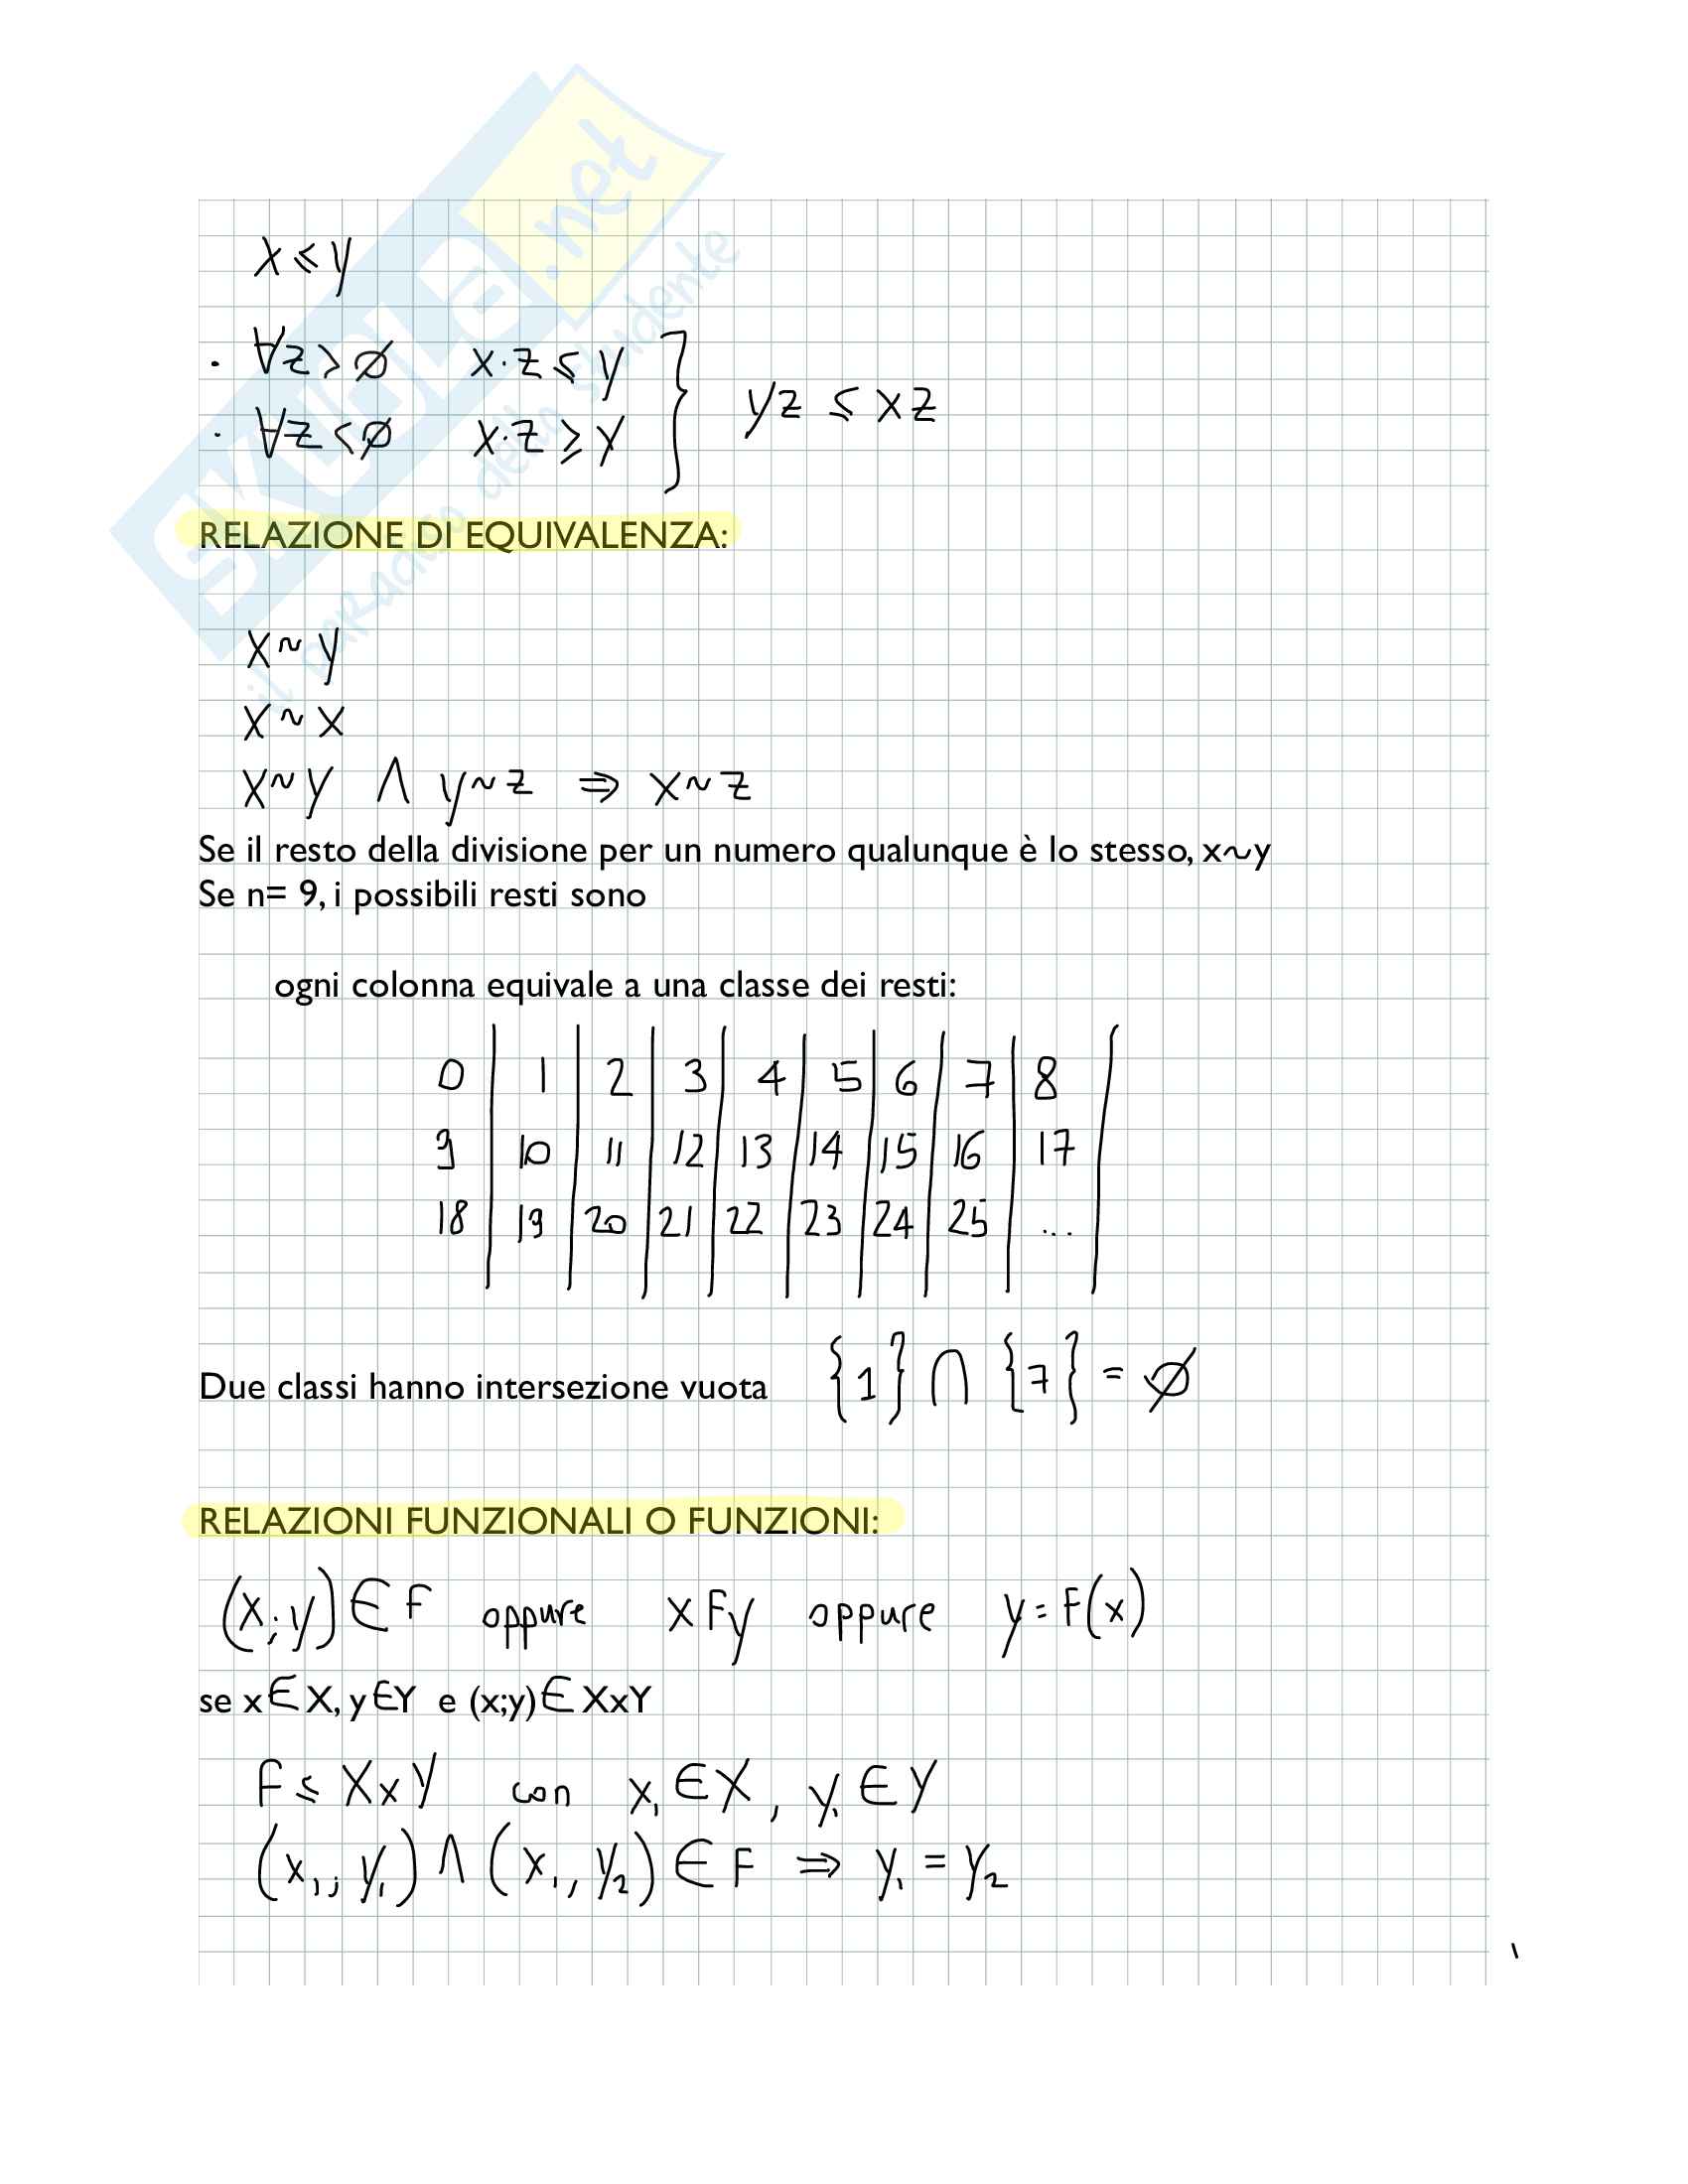 SKUOLA.net
il paradiso dello studente
x ⩽ y
· ∀z > ∅ x·z ⩽ y
· ∀z < ∅ x·z ⩾ y } yz ⩽ xz
RELAZIONE DI EQUIVALENZA:
x ~ y
x ~ x
x ~ y ∧ y ~ z ⇒ x ~ z
Se il resto della divisione per un numero qualunque è lo stesso, x~y
Se n= 9, i possibili resti sono
ogni colonna equivale a una classe dei resti:
0 | 1 | 2 | 3 | 4 | 5 | 6 | 7 | 8 |
9 | 10 | 11 | 12 | 13 | 14 | 15 | 16 | 17 |
18 | 19 | 20 | 21 | 22 | 23 | 24 | 25 | ... |
Due classi hanno intersezione vuota {1} ∩ {7} = ∅
RELAZIONI FUNZIONALI O FUNZIONI:
(x;y) ∈ F oppure x F y oppure y = F(x)
se x∈X, y∈Y e (x;y)∈ XxY
F ⩽ X x Y con x₁ ∈ X, y₁ ∈ Y
(x₁; y₁) ∧ (x₁, y₂) ∈ F ⇒ y₁ = y₂